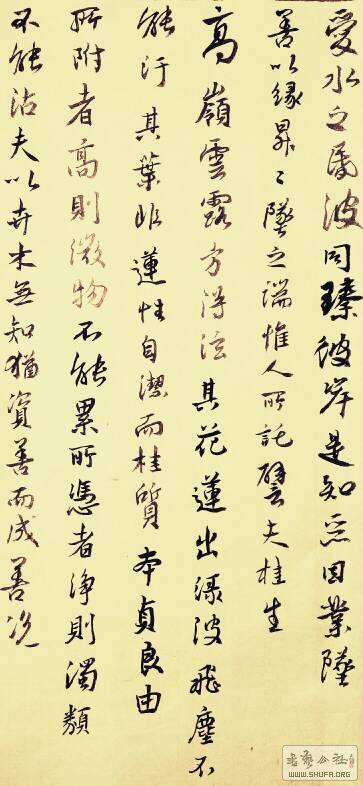 愛水之昏波同臻彼岸是知惡因業墜
善以緣昇〻墜之端惟人所託譬夫桂生
高嶺雲露方得泫其花蓮出淥波飛塵不
能汙其葉非蓮性自潔而桂質本貞良由
所附者高則微物不能累所憑者淨則濁類
不能沾夫以卉木無知猶資善而成善況
书艺公社
WWW.SHUFA.ORG